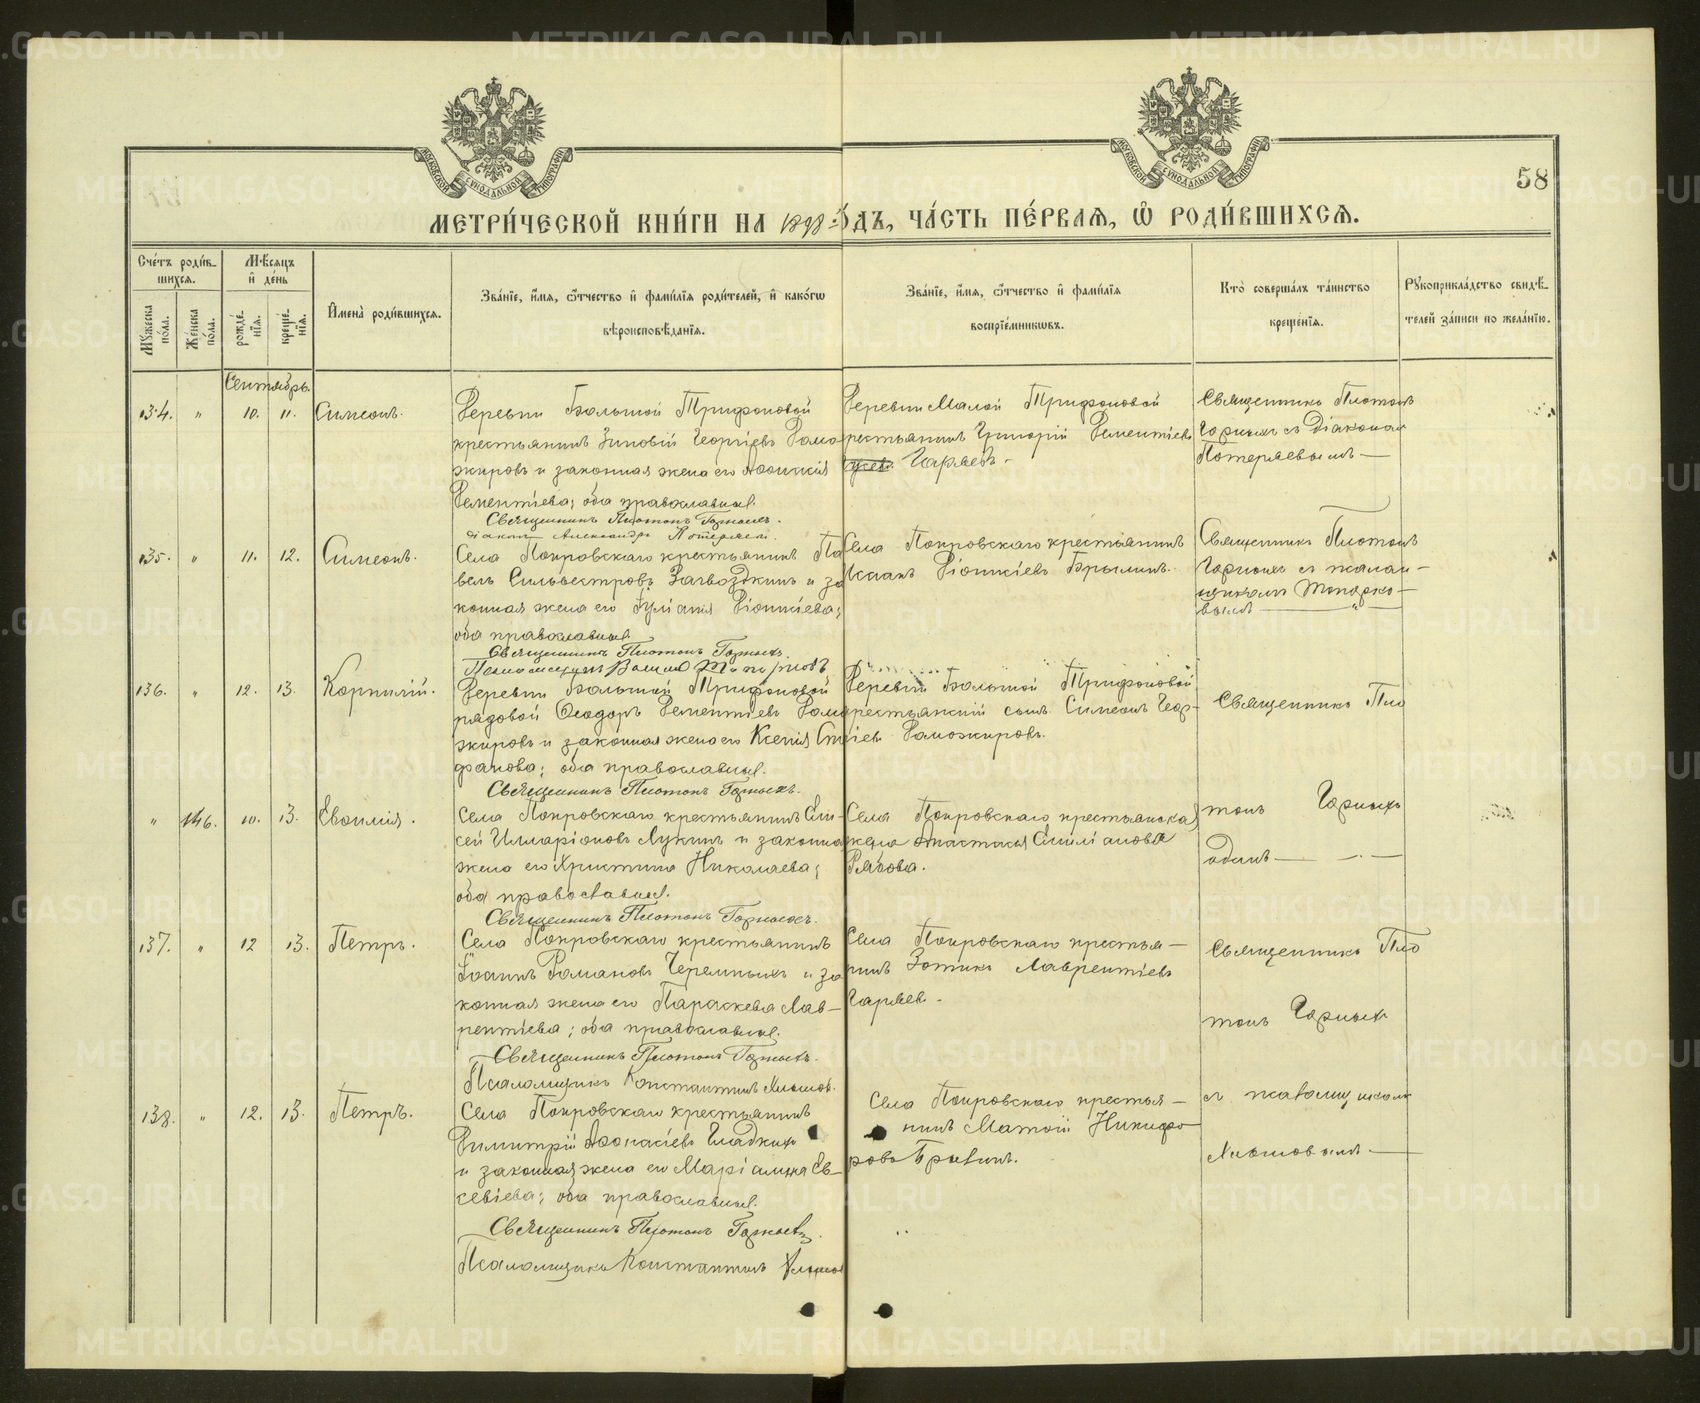 МОСКОВСКОЙ СѴНОДАЛЬНОЙ ТИПОГРАФІИ
МОСКОВСКОЙ СѴНОДАЛЬНОЙ ТИПОГРАФІИ
58
МЕТРИ́ЧЕСКОЙ КНИ́ГИ НА 1898 ГО́ДЪ, ЧА́СТЬ ПЕ́РВАѦ, Ѽ РОДИ́ВШИХСѦ.
Сче́тъ роди́в-
шихся.
Мѣ́сяцъ
и҆ де́нь
Мꙋ́жеска по́ла.
Же́нска по́ла.
рожде́нїя.
креще́нїя.
И҆мена̀ роди́вшихся.
Зва́нїе, и҆́мя, ѻ҆́тчество и҆ фами́лїя роди́телей, и҆ како́гѡ
вѣроисповѣ́данїя.
Зва́нїе, и҆́мя, ѻ҆́тчество и҆ фами́лїя
воспрїе́мникѡвъ.
Кто̀ соверша́лъ та́инство
креще́нїя.
Рꙋкоприкла́дство свидѣ́-
телей за́писи по жела́нїю.
Сентябрь.
134. " 10. 11. Симеонъ.
Деревни Большой Трифоновой
крестьянинъ Зиновій Георгіевъ Домо
жировъ и законная жена его
Дементіева; оба православные.
Священникъ Платонъ Горныхъ.
Діаконъ Александръ Потеряевъ.
Деревни Малой Трифоновой
крестьянинъ Григорій Дементіевъ
Гаряевъ.
Священникъ Платонъ
Горныхъ съ Діакономъ
Потеряевымъ—
135. " 11. 12. Симеонъ.
Села Покровскаго крестьянинъ Па
велъ Сильвестровъ Загвоздкинъ и за
конная жена его Іуліанія Діонисіева;
оба православные.
Священникъ Платонъ Горныхъ.
Села Покровскаго крестьянинъ
Исаакъ Діонисіевъ Брылинъ.
Священникъ Платонъ
Горныхъ съ псалом-
щикомъ Топорко-
вымъ —
136. " 12. 13. Корнилій.
Деревни Большой Трифоновой
рядовой Ѳеодоръ Дементіевъ Домо
жировъ и законная жена его Ксенія Сте
фанова; оба православные.
Священникъ Платонъ Горныхъ.
Деревни Большой Трифоновой
крестьянскій сынъ Симеонъ Геор-
гіевъ Доможировъ.
Священникъ Пла
" 146. 10. 13. Евѳимія.
Села Покровскаго крестьянинъ Ели-
сей Илларіоновъ Лукинъ и законная
жена его Христина Николаева;
оба православные.
Священникъ Платонъ Горныхъ.
Села Покровскаго крестьянская
жена Анастасія Емиліанова
Рябова.
тонъ Горныхъ
одинъ —
137. " 12 13. Петръ.
Села Покровскаго крестьянинъ
Іоаннъ Романовъ Черемныхъ и за
конная жена его Параскева Лав-
рентіева; оба православные.
Священникъ Платонъ Горныхъ.
Псаломщикъ Константинъ
Села Покровскаго крестья-
нинъ Зотикъ Лаврентіевъ
Гаряев.
Священникъ Пла
тонъ Горныхъ
138. " 12. 13. Петръ.
Села Покровскаго крестьянинъ
Димитрій Аѳанасіевъ Гладкихъ
и законная жена его Маріамна Ев-
севіева; оба православные.
Священникъ Платонъ Горныхъ.
Псаломщикъ Константинъ
Села Покровскаго крестья-
нинъ Матѳій Никифо
ровъ
съ псаломщикомъ